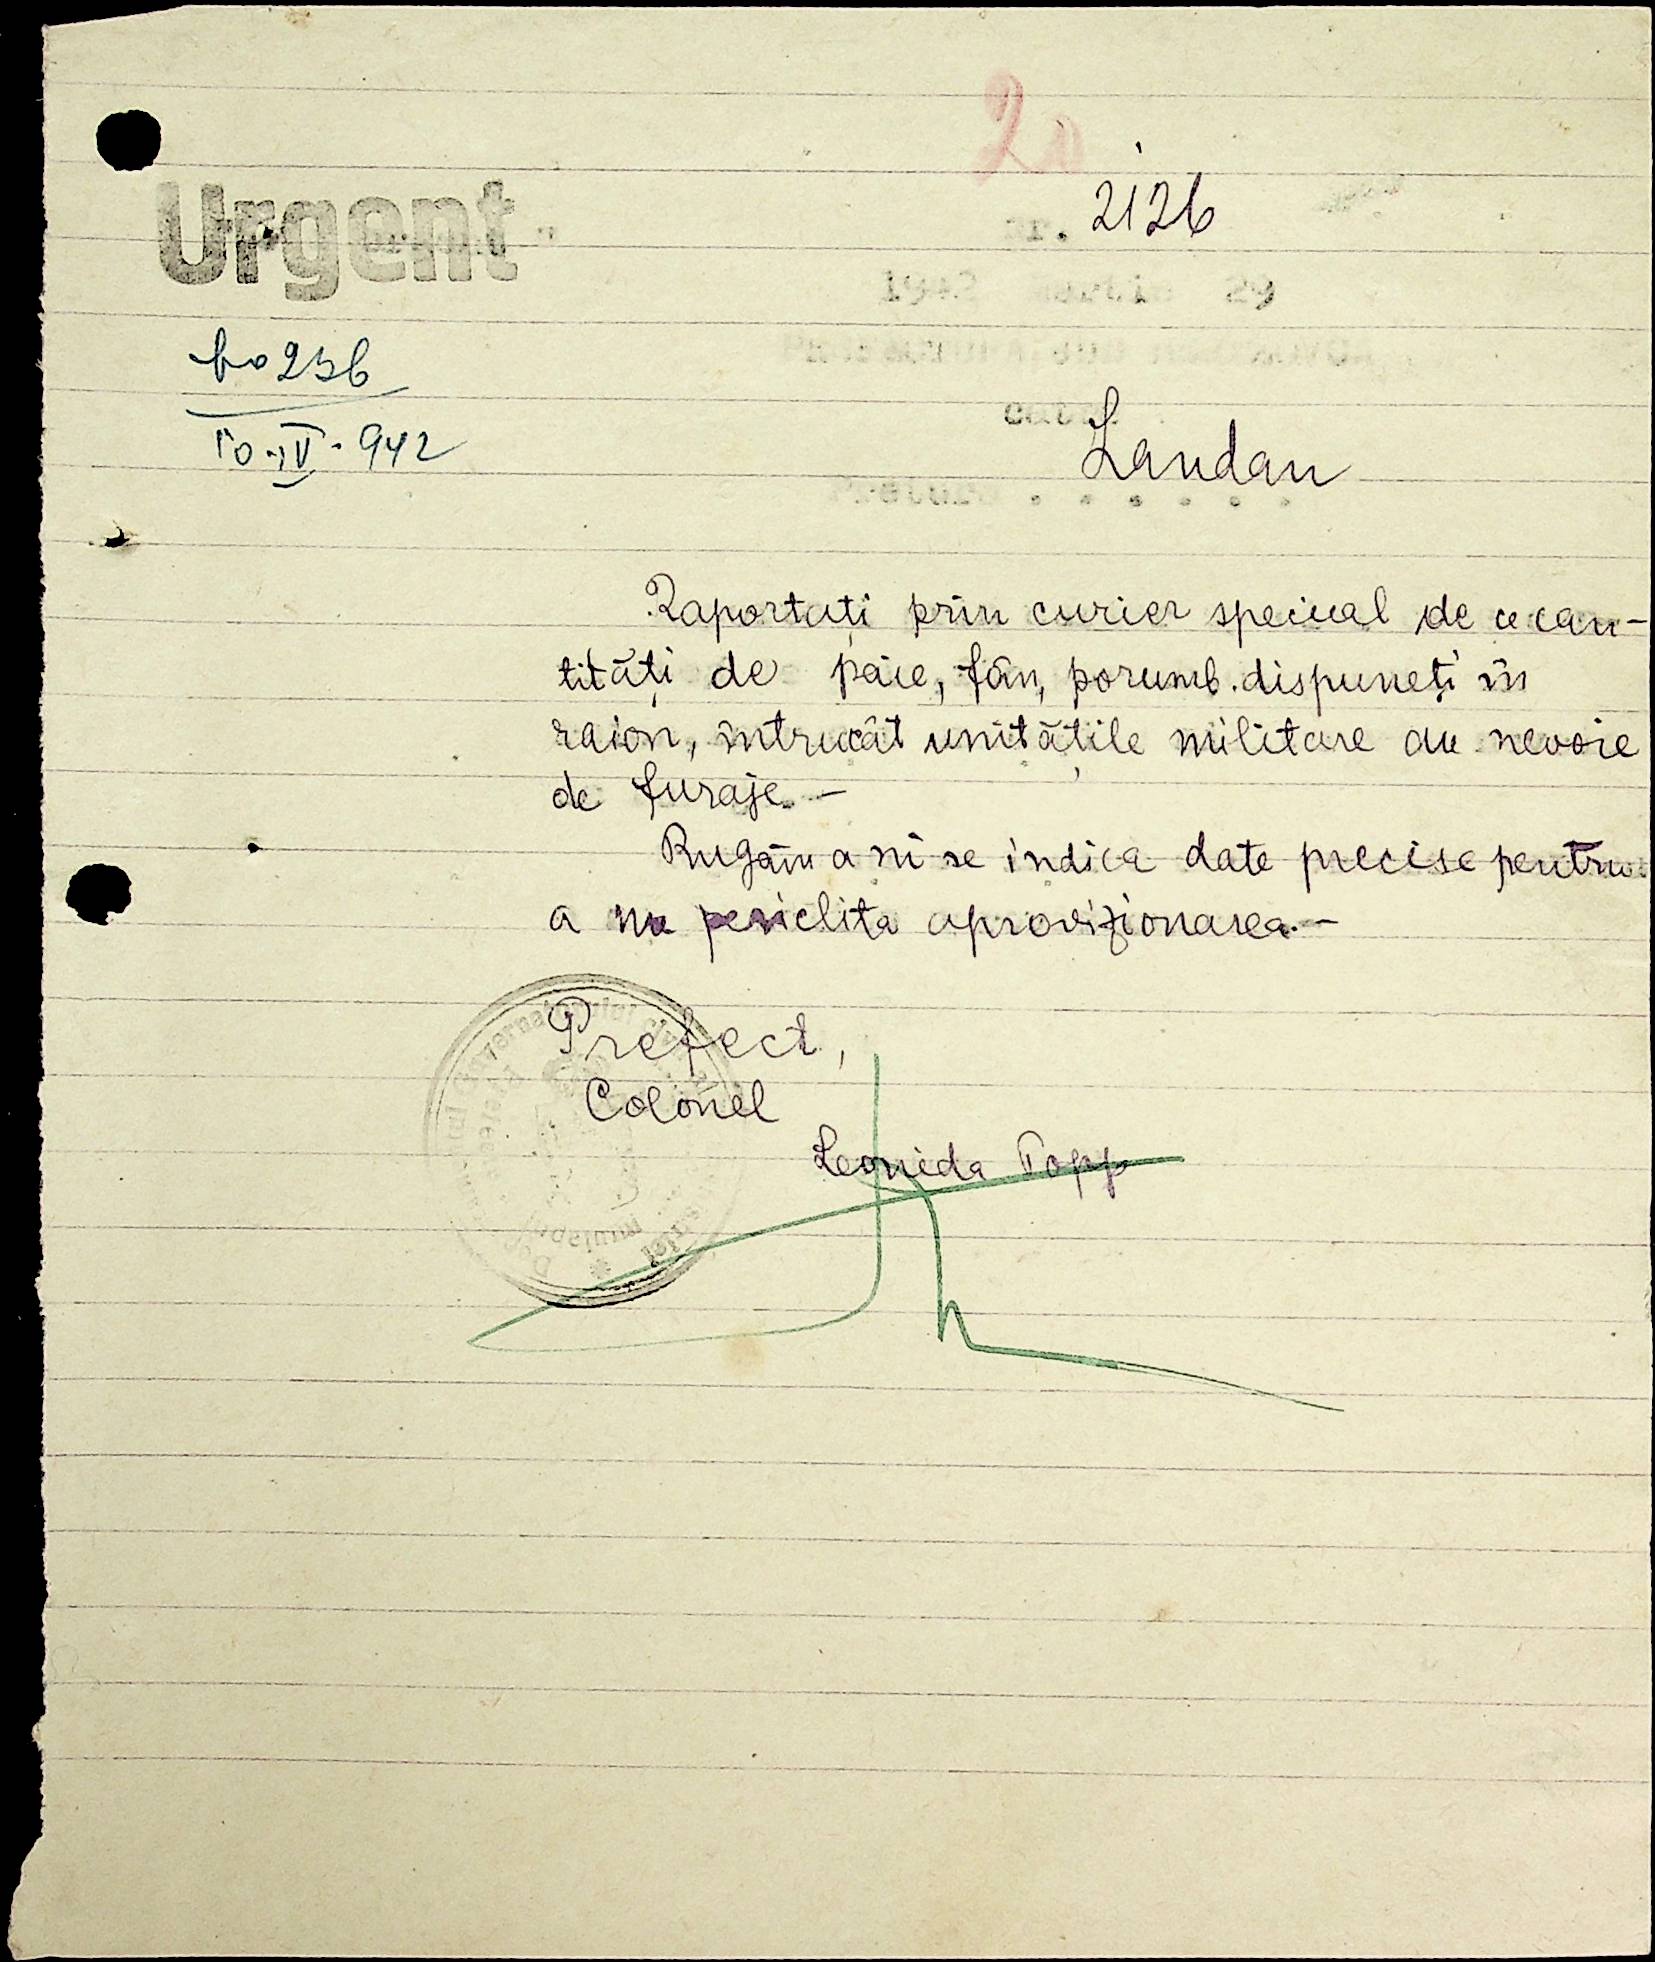 20
Urgent
2126
No 236
10·IV·942
1942 martie 29
Landau
Raportați prin curier special de ce can-
tități de paie, fân, porumb dispuneți în
raion, întrucât unitățile militare au nevoie
de furaje.-
Rugăm a ni se indica date precise pentru
a nu periclita aprovizionarea.-
Prefect,
Colonel
Leonida Popp